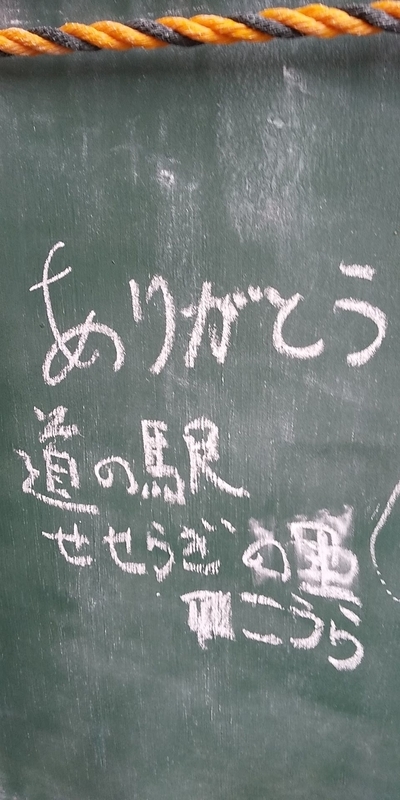 ありがとう
道の駅
せせらぎの里
こうら